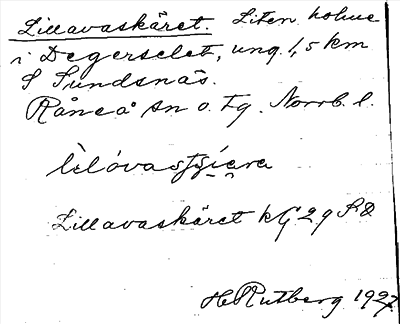 Lillavaskäret. Liten holme
i Degerselet, ung. 1,5 km
S Sundsnäs.
Råneå sn o. tg. Norrb. l.
Lillavaskäret kG 29 SD
H Rutberg 1927.